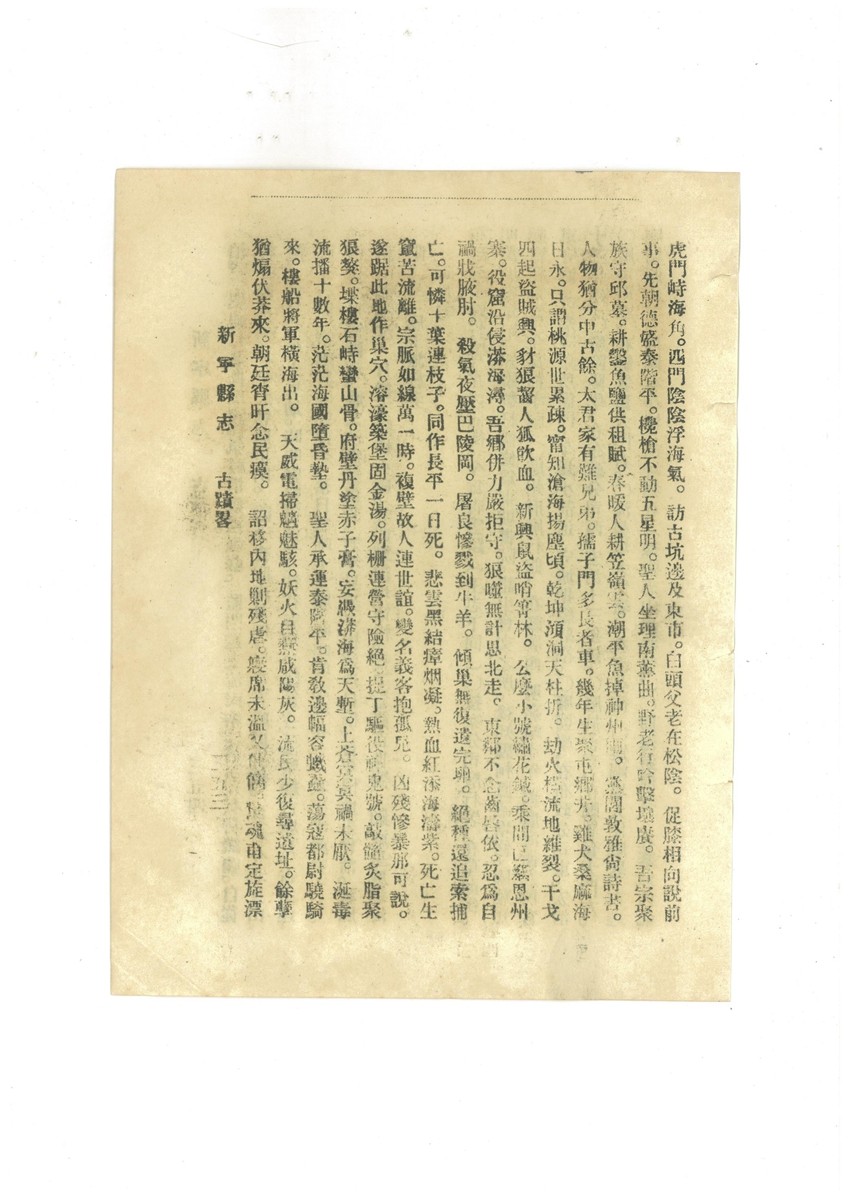 虎門峙海角。四門陰陰浮海氣。訪古坑邊及東市。白頭父老在松陰。促膝相向說前
事。先朝德盛泰階平。欃槍不動五星明。聖人坐理南薰曲。野老行吟擊壤賡。吾宗聚
族守邱墓。耕鑿魚鹽供租賦。春暖人耕笠嶺雲。潮平魚掉神州雨。黨閭敦雅尙詩書。
人物猶分中古餘。太君家有難兄弟。孺子門多長者車。幾年生聚屯鄉井。雞犬桑麻海
日永。只謂桃源世累疎。甯知滄海揚塵頃。乾坤澒洞天柱折。劫火橫流地維裂。干戈
四起盜賊興。豺狼齧人狐飲血。新興鼠盜哨宵林。公麼小號繡花鍼。乘間襲恩州
寨。役窟沿侵漭海潯。吾鄉併力嚴拒守。狼噬無計思北走。東鄰不念齒唇依。忍為自
禍戕腋肘。殺氣夜壓巴陵岡。屠良慘戮到牛羊。傾巢無復遺完卵。絕種還追索捕
亡。可憐十葉連枝子。同作長平一日死。悲雲黑結瘴烟凝。熱血紅添海濤紫。死亡生
竄苦流離。宗脈如線萬一時。複壁故人連世誼。變名義客抱孤兒。凶殘慘暴那可說。
遂踞此地作巢穴。溶濠築堡固金湯。列柵連營守險絕。提丁驅役神鬼號。敲髓炙脂聚
狼獒。堞樓石峙蠻山骨。府壁丹塗赤子膏。妄憑漭海爲天塹。上蒼冥冥禍未厭。涎毒
流播十數年。茫茫海國墮昏墊。聖人承運泰階平。肯敎邊幅容蟻蝨。蕩寇都尉驍騎
來。樓船將軍橫海出。天威電掃魑魅駭。妖火自爇咸陽灰。流民少復尋遺址。餘孽
猶煽伏莽來。朝廷宵旰念民瘼。詔移內地剿殘虐。寢席未溫又魂甫定旋漂
新寧縣志 古蹟畧
二五三